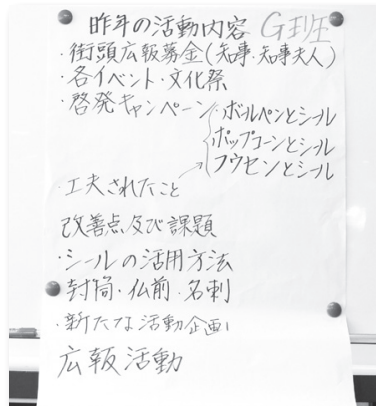 昨年の活動内容 G班
・街頭広報募金(知事・知事夫人)
・各イベント・文化祭
・啓発キャンペーン・ボールペンとシール
ポップコーンとシール
フウセンとシール
・工夫されたこと
改善点及び課題
・シールの活用方法
封筒・仏前・名刺
・新たな活動企画
広報活動